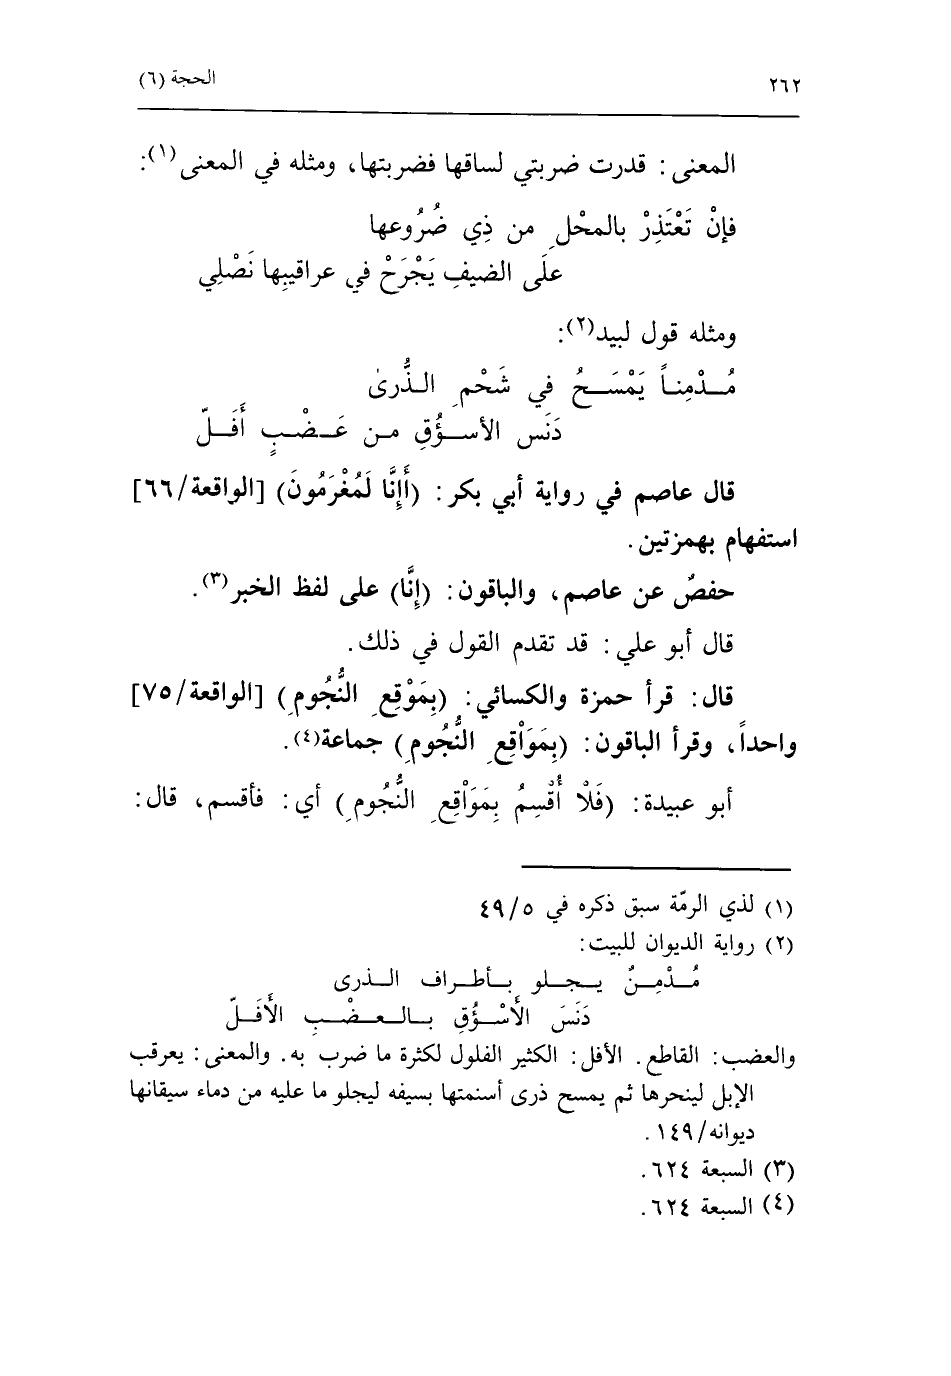 ٢٦٢ الحجة (٦)
المعنى: قدرت ضربتي لساقها فضربتها، ومثله في المعنى(١):
فإنْ تَعْتَذِرْ بالمحْلِ من ذِي ضُرُوعها
علَى الضيفِ يَجْرَحْ في عراقيبِها نَصْلِي
ومثله قول لبيد(٢):
مُدْمِناً يَمْسَحُ في شَحْمِ الذُّرىٰ
دَنَس الأسؤُقِ من عَضْبٍ أَفَلّ
قال عاصم في رواية أبي بكر: (أَإِنَّا لَمُغْرَمُونَ) [الواقعة/٦٦]
استفهام بهمزتين.
حفصٌ عن عاصم، والباقون: (إِنَّا) على لفظ الخبر(٣).
قال أبو علي: قد تقدم القول في ذلك.
قال: قرأ حمزة والكسائي: (بِمَوْقِعِ النُّجُومِ) [الواقعة/٧٥]
واحداً، وقرأ الباقون: (بِمَوَاْقِعِ النُّجُومِ) جماعة(٤).
أبو عبيدة: (فَلَاْ أُقْسِمُ بِمَوَاْقِعِ النُّجُومِ) أي: فأقسم، قال:
(١) لذي الرمّة سبق ذكره في ٤٩/٥
(٢) رواية الديوان للبيت:
مُدْمِنٌ يجلو بأطراف الذرى
دَنَسَ الأَسْؤُقِ بالعضْبِ الأَفَلّ
والعضب: القاطع. الأفل: الكثير الفلول لكثرة ما ضرب به. والمعنى: يعرقب
الإبل لينحرها ثم يمسح ذرى أسنمتها بسيفه ليجلو ما عليه من دماء سيقانها
ديوانه/١٤٩.
(٣) السبعة ٦٢٤.
(٤) السبعة ٦٢٤.